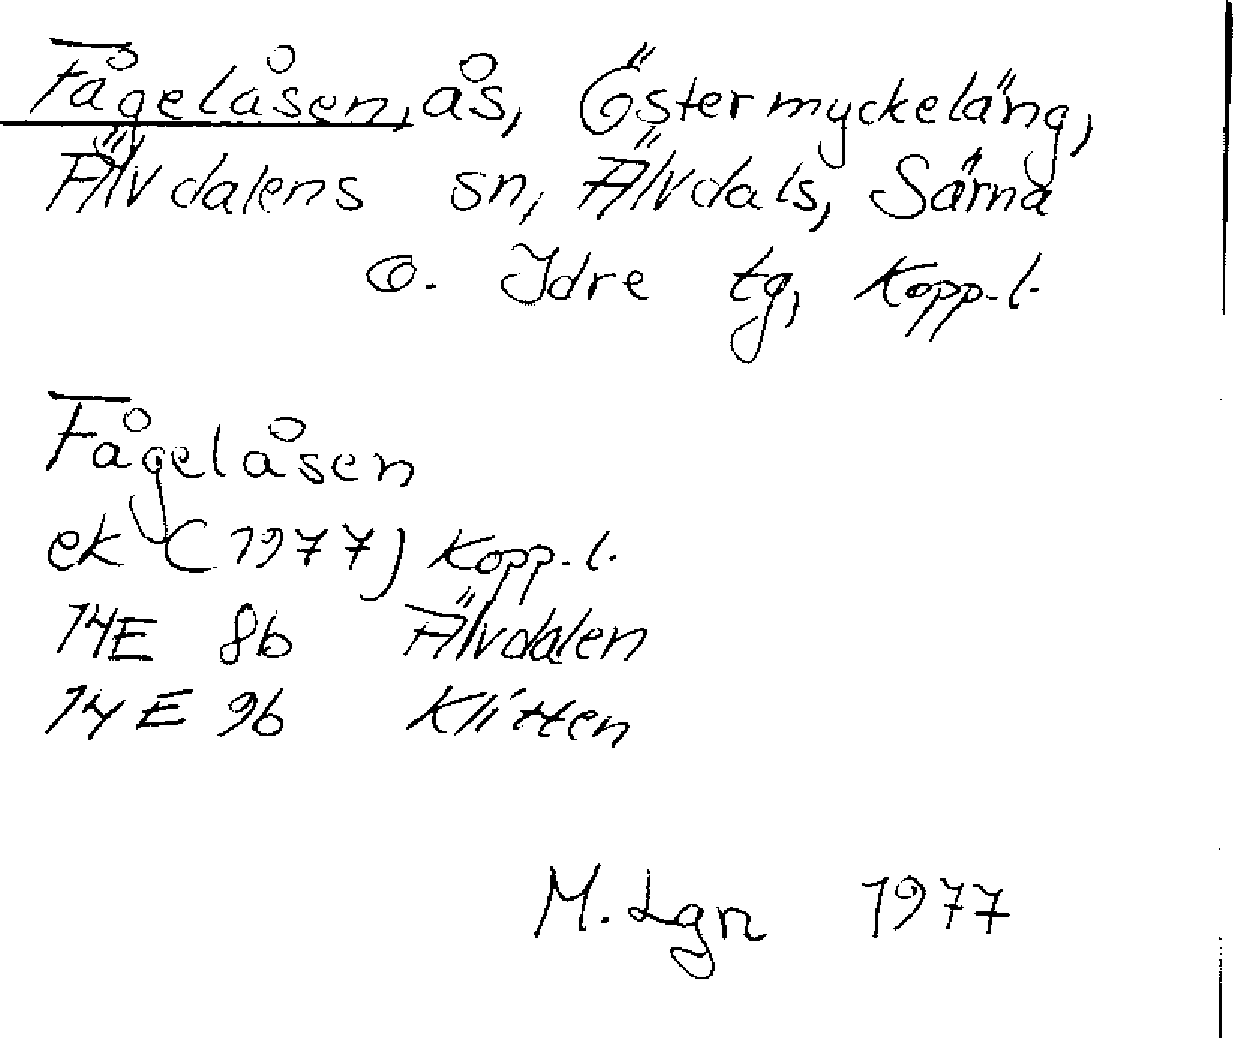 Fågelåsen, ås, Östermyckeläng,
Älvdalens sn, Älvdals, Särna
o. Idre tg, Kopp. l.
Fågelåsen
ek (1977) Kopp. l.
14E 8b Älvdalen
14E 9b Klitten
M. Lgn 1977